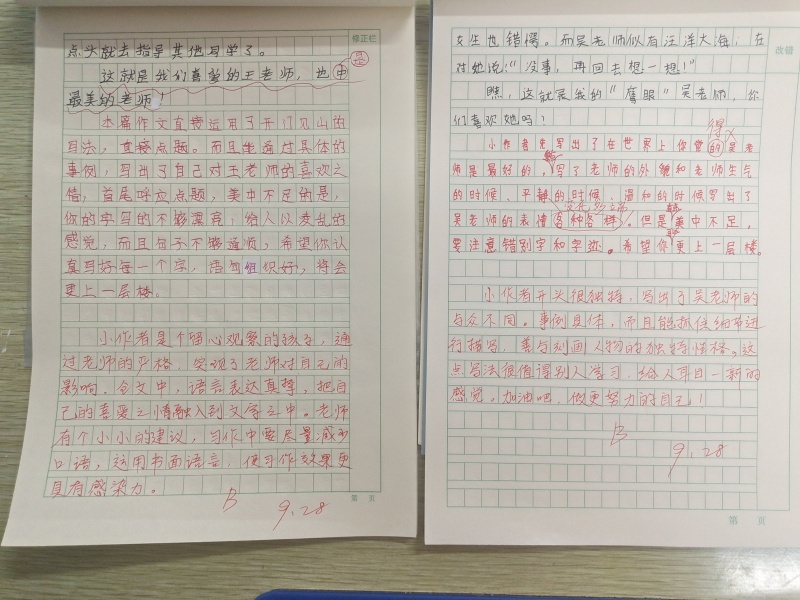 修正栏
点头就去指导其他同学了。
这就是我们喜爱的王老师,也
是
最美的老师!
本篇作文直接运用了开门见山的
方法,直接点题。而且坐落过具体的
事例,写出了自己对王老师的喜欢之
情,首尾呼应点题,美中不足的是,
你的字写的不够漂亮,给人以凌乱的
感觉,而且句子不够通顺,希望你认
真写好每一个字,语句组织好,将会
更上一层楼。
小作者是个留心观察的孩子,通
过老师的严格,发现了老师对自己的
影响。全文中,语言表达真挚,把自
己的喜爱之情融入到文字之中。老师
有个小小的建议,习作中要尽量减少
口语,运用书面语言,使习作效果更
具有感染力。
B
9.28
第 页
女生也错愕。而吴老师似有汪洋大海,在
改错
对她说:“没事,再回去想一想!”
瞧,这就是我的“鹰眼”吴老师,你
们喜欢她吗?
得
小作者先写出了在世界上你觉的吴老
师是最好的,写了老师的外貌和老师生气
的时候、平静的时候、温和的时候写出了
吴老师的表情各种各样。但是美中不足,
要注意错别字和字迹。希望你更上一层楼。
小作者开头很独特,写出了吴老师的
与众不同。事例具体,而且能抓住细节进
行描写,善与刻画人物的独特性格。这
点写法很值得别人学习,给人耳目一新的
感觉,加油吧,做更努力的自己!
B
9.28
第 页